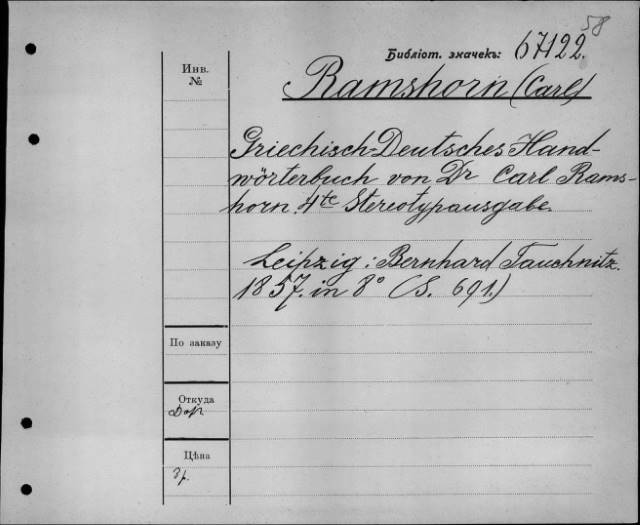 58
Библіот. значекъ: 67122.
Инв.
№
Ramshorn (Carl)
Griechisch-Deutsches Hand-
wörterbuch von Dr Carl Rams-
horn. 4te Stereotypausgabe.
Leipzig: Bernhard Tauchnitz.
1857. in 8° (S. 691.)
По заказу
Откуда
Цѣна